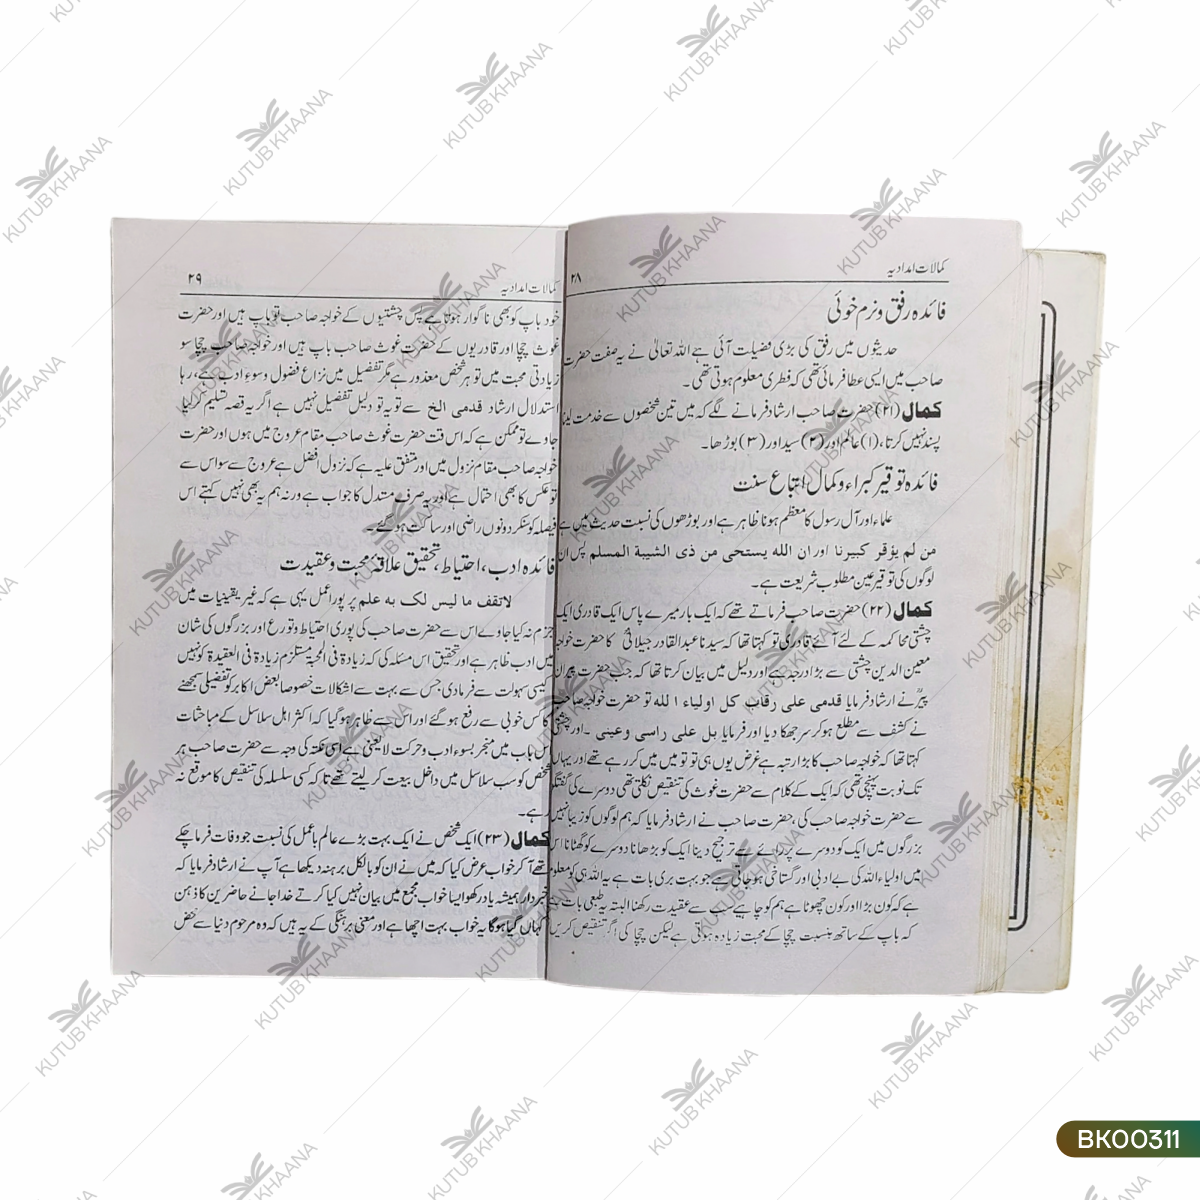 کمالات امدادیہ
۲۸
فائدہ رفق و نرم خوئی
حدیثوں میں رفق کی بڑی فضیلت آئی ہے اللہ تعالیٰ نے یہ صفت حضرت
صاحب میں ایسی عطا فرمائی تھی کہ فطری معلوم ہوتی تھی۔
کمال (۲۱) حضرت صاحب ارشاد فرمانے لگے کہ میں تین شخصوں سے خدمت لینا
پسند نہیں کرتا، (۱) عالم اور (۲) سید اور (۳) بوڑھا۔
فائدہ توقیر کبراء و کمال اتباع سنت
علماء اور آل رسول کا معظم ہونا ظاہر ہے اور بوڑھوں کی نسبت حدیث میں ہے
من لم یؤقر کبیرنا اور ان الله یستحی من ذی الشیبة المسلم پس ان
لوگوں کی توقیر عین مطلوب شریعت ہے۔
کمال (۲۲) حضرت صاحب فرماتے تھے کہ ایک بار میرے پاس ایک قادری ایک
چشتی محاکمہ کے لئے آئے قادری تو کہتا تھا کہ سیدنا عبدالقادر جیلانیؒ کا حضرت خواجہ
معین الدین چشتی سے بڑا درجہ ہے اور دلیل میں بیان کرتا تھا کہ جب حضرت پیران
پیرؒ نے ارشاد فرمایا قدمی علی رقاب کل اولیاء الله تو حضرت خواجہ صاحب
نے کشف سے مطلع ہو کر سر جھکا دیا اور فرمایا بل علی راسی وعینی ۔اور چشتی
کہتا تھا کہ خواجہ صاحب کا بڑا رتبہ ہے غرض یوں ہی تو تو میں میں کر رہے تھے اور یہاں
تک نوبت پہنچی تھی کہ ایک کے کلام سے حضرت غوث کی تنقیص نکلتی تھی دوسرے کی گفتگو
سے حضرت خواجہ صاحب کی، حضرت صاحب نے ارشاد فرمایا کہ ہم لوگوں کو زیبا نہیں
بزرگوں میں ایک کو دوسرے پر رائے سے ترجیح دینا ایک کو بڑھانا دوسرے کو گھٹانا اس
میں اولیاء اللہ کی بے ادبی اور گستاخی ہو جاتی ہے جو بہت بری بات ہے یہ اللہ ہی کو معلوم
ہے کہ کون بڑا اور کون چھوٹا ہے ہم کو چاہیے سب سے عقیدت رکھنا البتہ یہ طبعی بات ہے
کہ باپ کے ساتھ بہ نسبت چچا کے محبت زیادہ ہوتی ہے لیکن چچا کی اگر تنقیص کریں
کمالات امدادیہ
۲۹
خود باپ کو بھی ناگوار ہوتا ہے پس چشتیوں کے خواجہ صاحب تو باپ ہیں اور حضرت
غوث چچا اور قادریوں کے حضرت غوث صاحب باپ ہیں اور خواجہ صاحب چچا سو
زیادتی محبت میں تو ہر شخص معذور ہے مگر تفصیل میں نزاع فضول و سوء ادب ہے، رہا
استدلال ارشاد قدمی الخ سے تو یہ تو دلیل تفضیل نہیں ہے اگر یہ قصہ تسلیم کر لیا
جاوے تو ممکن ہے کہ اس وقت حضرت غوث صاحب مقام عروج میں ہوں اور حضرت
خواجہ صاحب مقام نزول میں اور متفق علیہ ہے کہ نزول افضل ہے عروج سے سو اس سے
تو عکس کا بھی احتمال ہے اور یہ صرف مستدل کا جواب ہے ورنہ ہم یہ بھی نہیں کہتے اس
فیصلہ کو سنکر دونوں راضی اور ساکت ہو گئے۔
فائدہ ادب، احتیاط، تحقیق علاقہٴ محبت و عقیدت
لاتقف ما لیس لک به علم پر پورا عمل یہی ہے کہ غیر یقینیات میں
جزم نہ کیا جاوے اس سے حضرت صاحب کی پوری احتیاط و تورع اور بزرگوں کی شان
میں ادب ظاہر ہے اور تحقیق اس مسئلہ کی کہ زیادۃ فی المحبۃ مستلزم زیادۃ فی العقیدۃ کو نہیں
کیسی سہولت سے فرمادی جس سے بہت سے اشکالات خصوصا بعض اکابر کو تفضیلی سمجھنے
کا کس خوبی سے رفع ہو گئے اور اس سے ظاہر ہو گیا کہ اکثر اہل سلاسل کے مباحثات
اس باب میں منجر بسوء ادب و حرکت لا یعنی ہے اسی نکتہ کی وجہ سے حضرت صاحب ہر
شخص کو سب سلاسل میں داخل بیعت کر لیتے تھے تا کہ کسی سلسلہ کی تنقیص کا موقع نہ
رہے۔
کمال (۲۳) ایک شخص نے ایک بہت بڑے عالم با عمل کی نسبت جو وفات فرما چکے
تھے آکر خواب عرض کیا کہ میں نے ان کو بالکل برہنہ دیکھا ہے آپ نے ارشاد فرمایا کہ
خبردار ہمیشہ یاد رکھو ایسا خواب مجمع میں بیان نہیں کیا کرتے خدا جانے حاضرین کا ذہن
کہاں گیا ہوگا یہ خواب بہت اچھا ہے اور معنی برہنگی کے یہ ہیں کہ وہ مرحوم دنیا سے محض
KUTUB KHAANA
BK00311